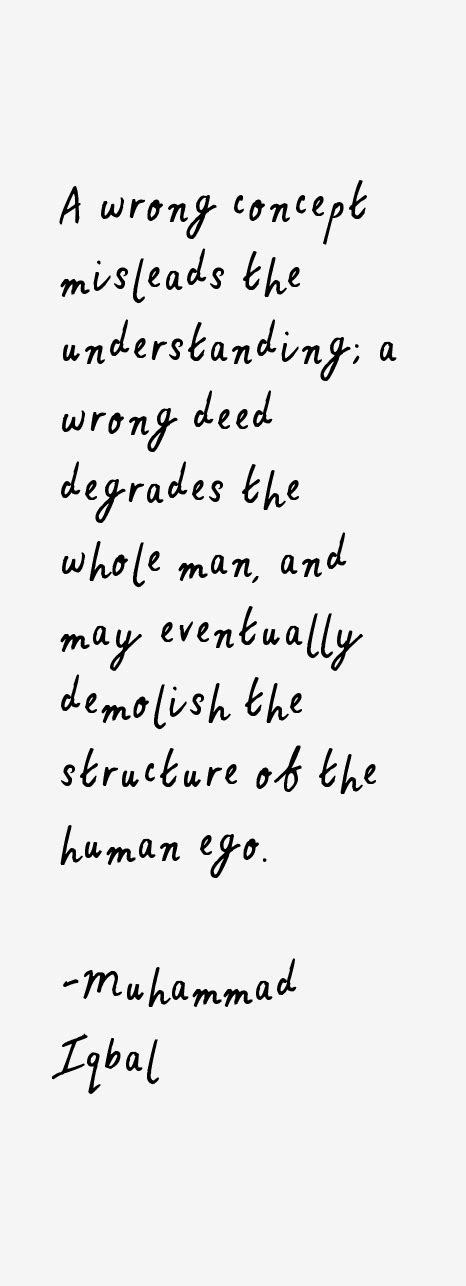 A wrong concept
misleads the
understanding; a
wrong deed
degrades the
whole man, and
may eventually
demolish the
structure of the
human ego.
-Muhammad
Iqbal